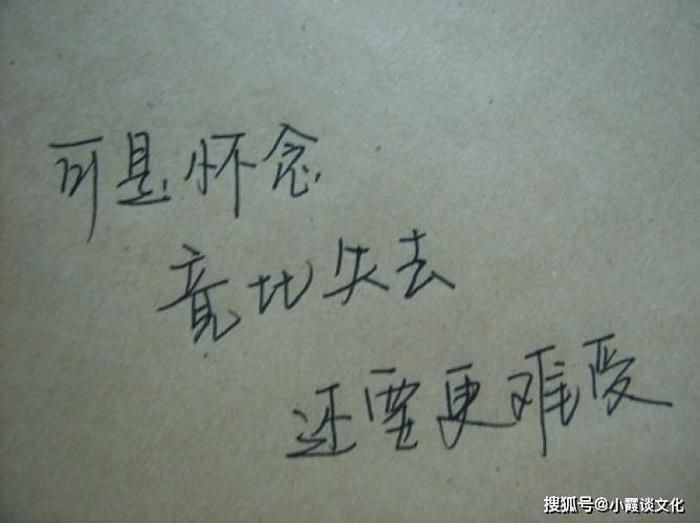 可是怀念
竟比失去
还要更难受
搜狐号@小霞谈文化